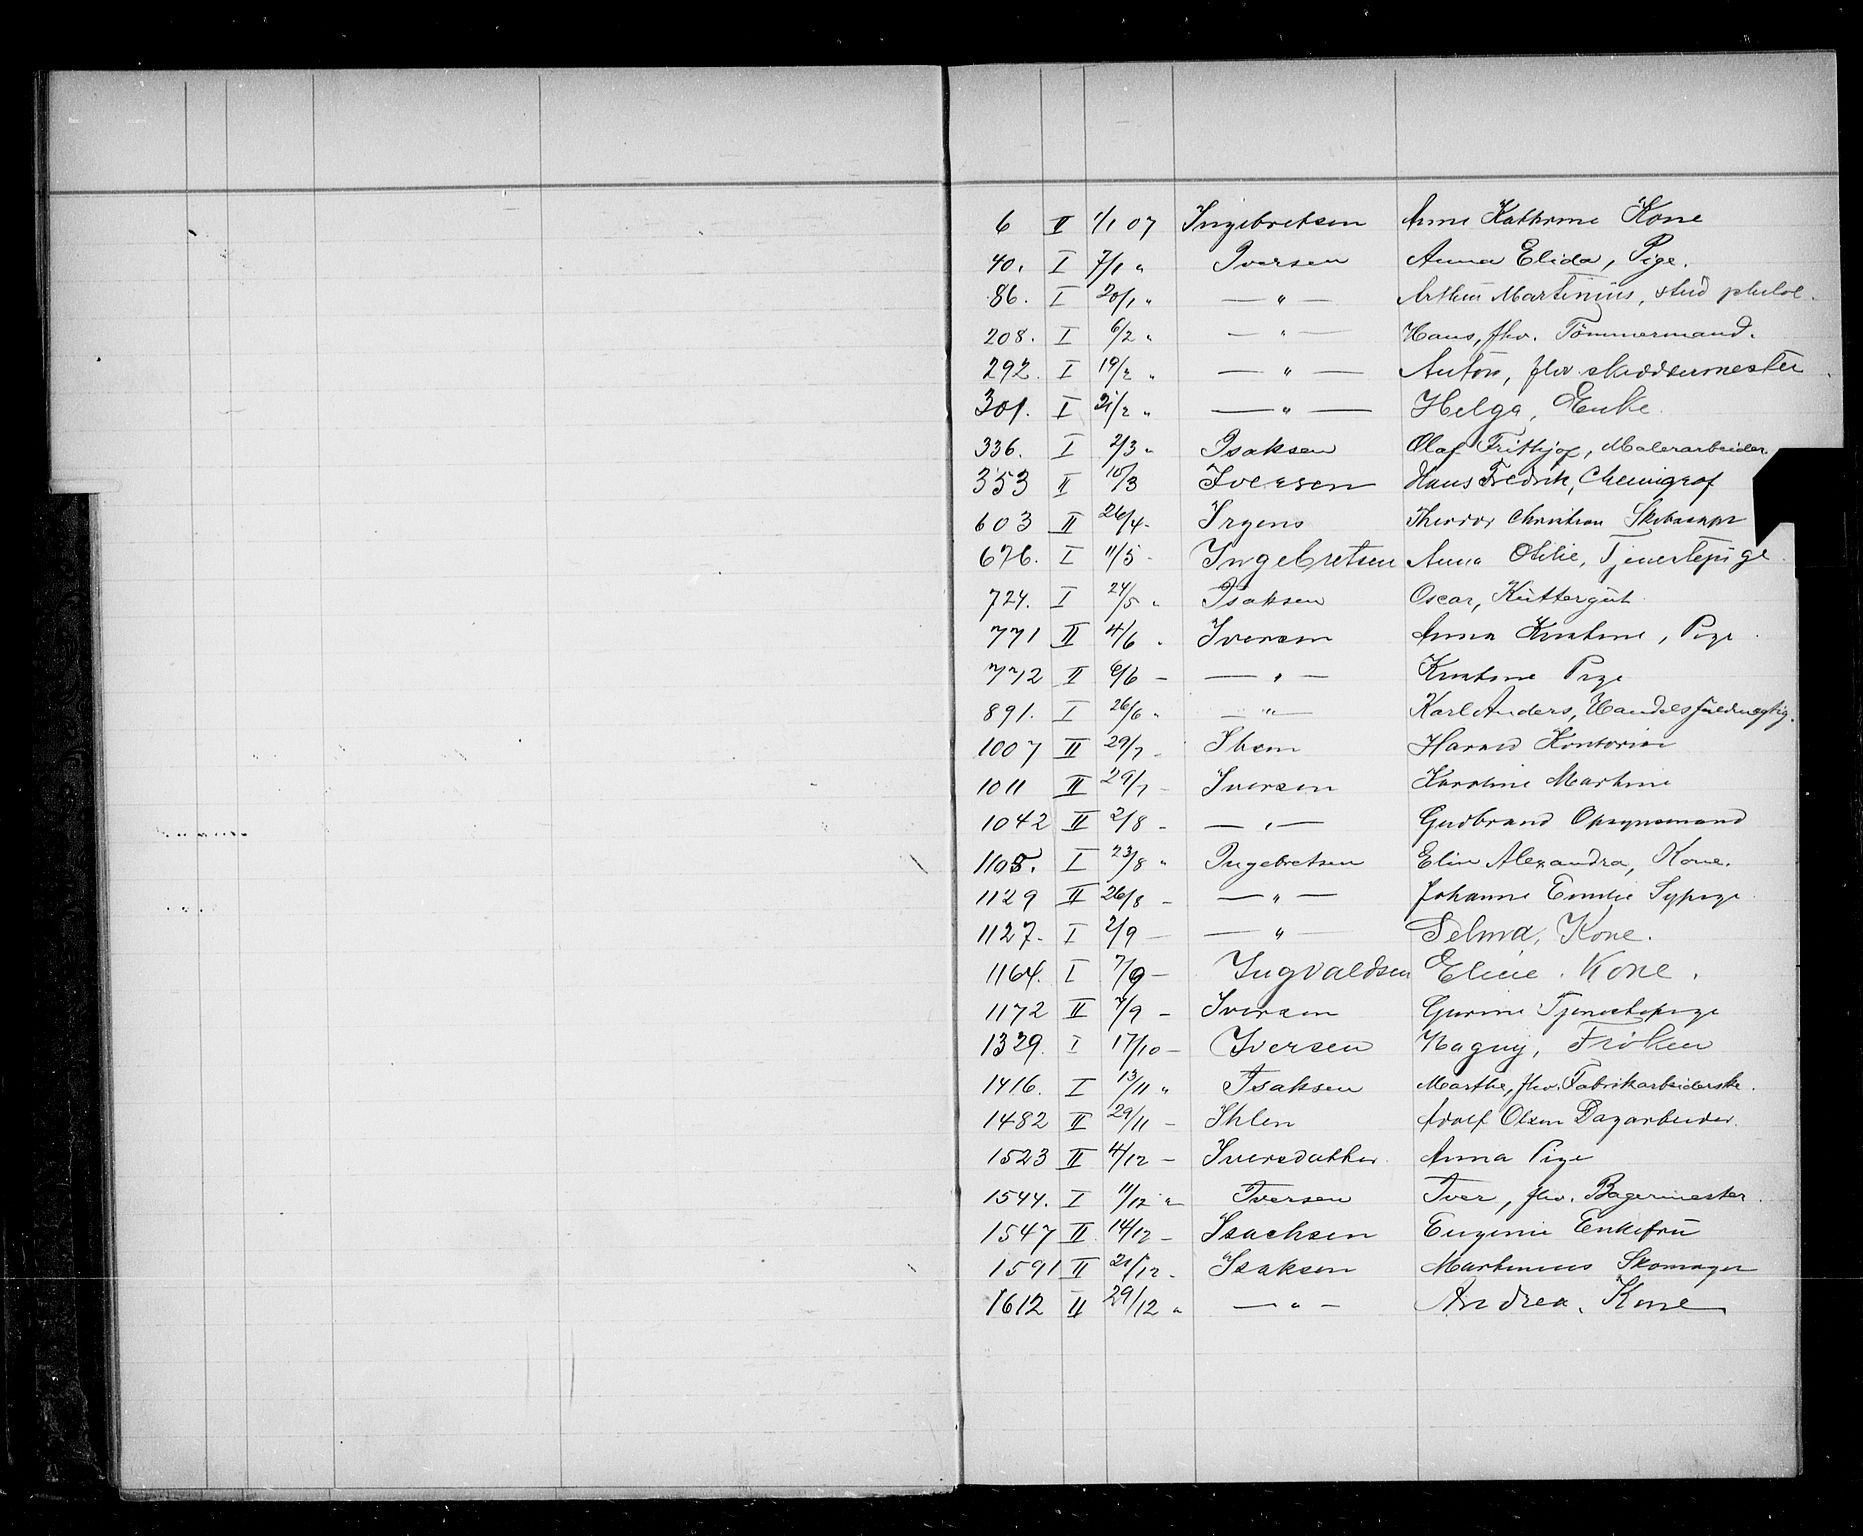 6 II 1/1 07 Ingebretsen Anne Kathrine Kone
40. I 7/1 " Iversen Anna Elida, Pige.
86. I 20/1 " — " — Arthur Martinius, stud philol.
208. I 6/2 " — " — Hans, fhv. Tømmermand.
292. I 19/2 " — " — Anton, fhv skræddermester
301. I 21/2 " — " — Helga, Enke.
336. I 2/3 " Isaksen Olaf Frithjof, Malerarbeider.
353 II 10/3 Iversen Hans Fredrik, Chemigraf
603 II 26/4 - Irgens Theodor Christian
676. I 11/5 - Ingebretsen Anna Otilie, Tjenestepige.
724. I 24/5 " Isaksen Oscar, Küttergüt
771 II 4/6 " Iversen Anna Kristine, Pige.
772 II 6/6 - — " — Kristine Pige
891. I 26/6 " — " — Karl Anders, Handelsfuldmegtig.
1007 II 29/7 - Ibsen Harald Kontorist
1011 II 29/7 - Iversen Karoline Martine
1042 II 2/8 - — " — Gudbrand Opsynsmand
1105. I 23/8 " Ingebretsen Elin Alexandra, Kone.
1129 II 26/8 - — " — Johanne Emilie Sypige
1127. I 2/9 — — " — Selma, Kone.
1164. I 7/9 - Ingvaldsen Eline. Kone.
1172 II 7/9 - Iversen Gurine Tjenestepige
1329. I 17/10 - Iversen Magny, Frøken
1416. I 13/11 " Isaksen Marthe, fhv. Fabrikarbeiderske.
1482 II 29/11 - Ihlen Adolf Olsen Dagarbeider.
1523 II 4/12 - Iversdatter Anna Pige
1544. I 11/12 " Iversen Iver, fhv. Bagermester.
1547 II 14/12 - Isachsen Eugenie Enkefrü
1591 II 21/12 - Isaksen Martinius Skomager
1612 II 29/12 " — " — Andrea. Kone